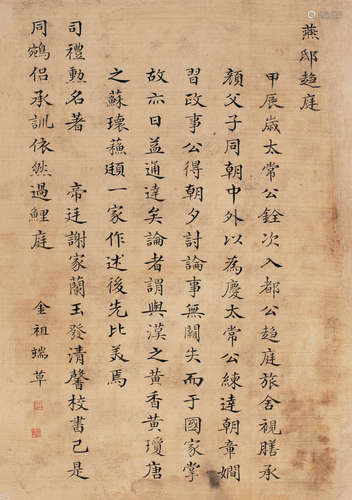 燕邸趨庭
甲辰歲太常公銓次入都公趨庭旅舍視膳承
顏父子同朝中外以為慶太常公練達朝章嫺
習政事公得朝夕討論事無闕失而于國家掌
故亦日益通達矣論者謂與漢之黃香黃瓊唐
之蘇瓌蘇頲一家作述後先比美焉
司禮勳名著 帝廷謝家蘭玉發清馨校書已是
同鵷侶承訓依然過鯉庭
金祖端草